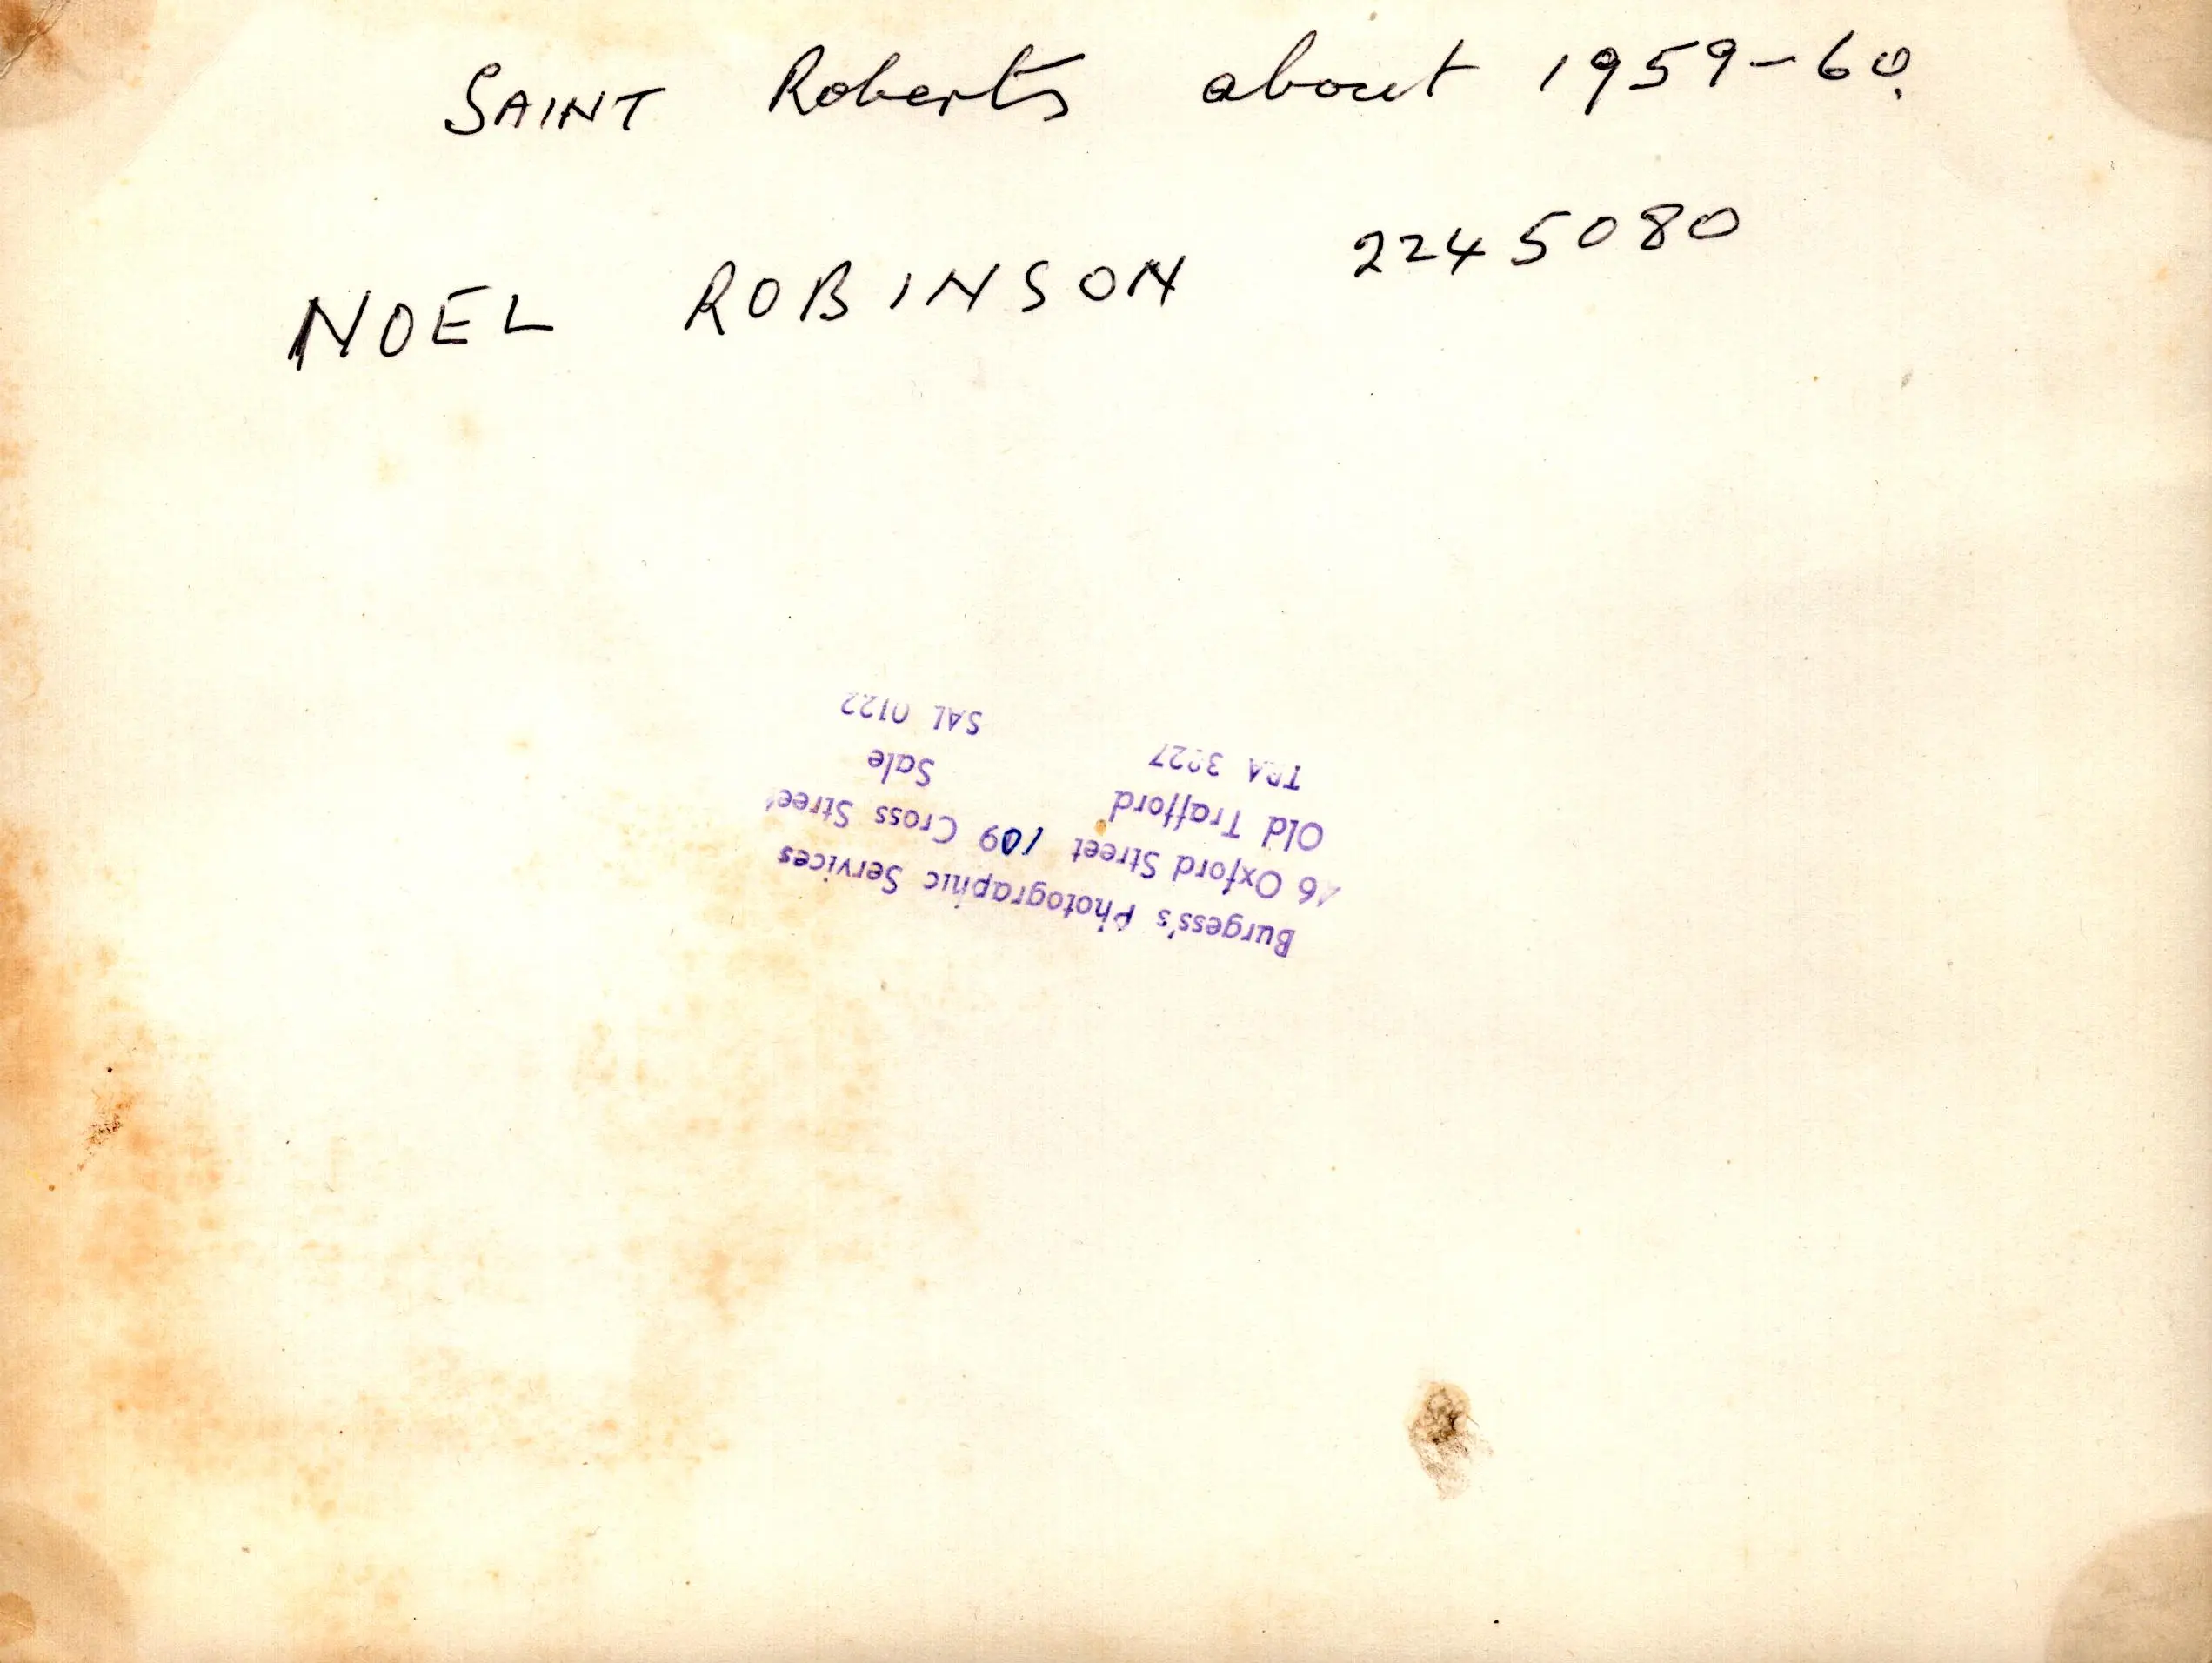 SAINT Roberts about 1959-60.
NOEL ROBINSON 2245080
Burgess's Photographic Services
Oxford Street 109 Cross Street
Old Trafford Sale
SAL 0122